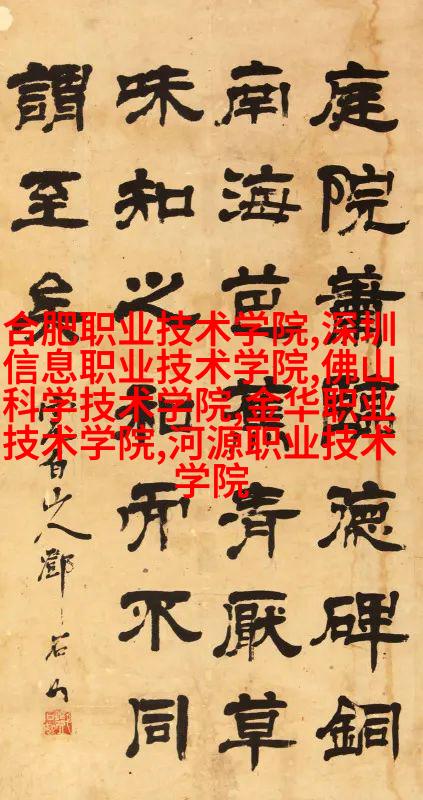 庭院蕭德碑銅
南海芭蕉清厭草
味知之和而不同
謂至矣
完白山人鄧石如
合肥职业技术学院,深圳
信息职业技术学院,佛山
科学技术学院,金华职业
技术学院,河源职业技术
学院